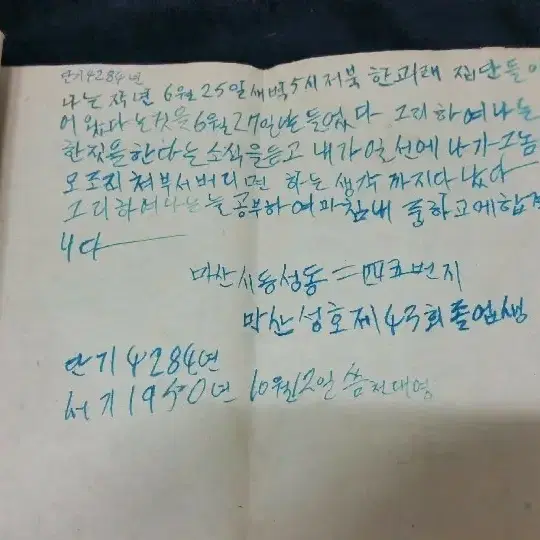 단기4284년
나는 작년 6월 25일 새벽 5시 저북 한괴래 집단들이
어 왔다는 것을 6월 27일날 들었다 그리하여 나는
한짓을 한다는 소식을 듣고 내가 일선에 나가 그놈
모조리 쳐부서버리면 하는 생각까지 다 났다
그리하여 나는 늘 공부하여 마침내 중학교에 합격
니다
마산시 동성동 二四五번지
마산 성호 제43회 졸업생
단기 4284년
서기 1950년 10월 2일 씀 전대영